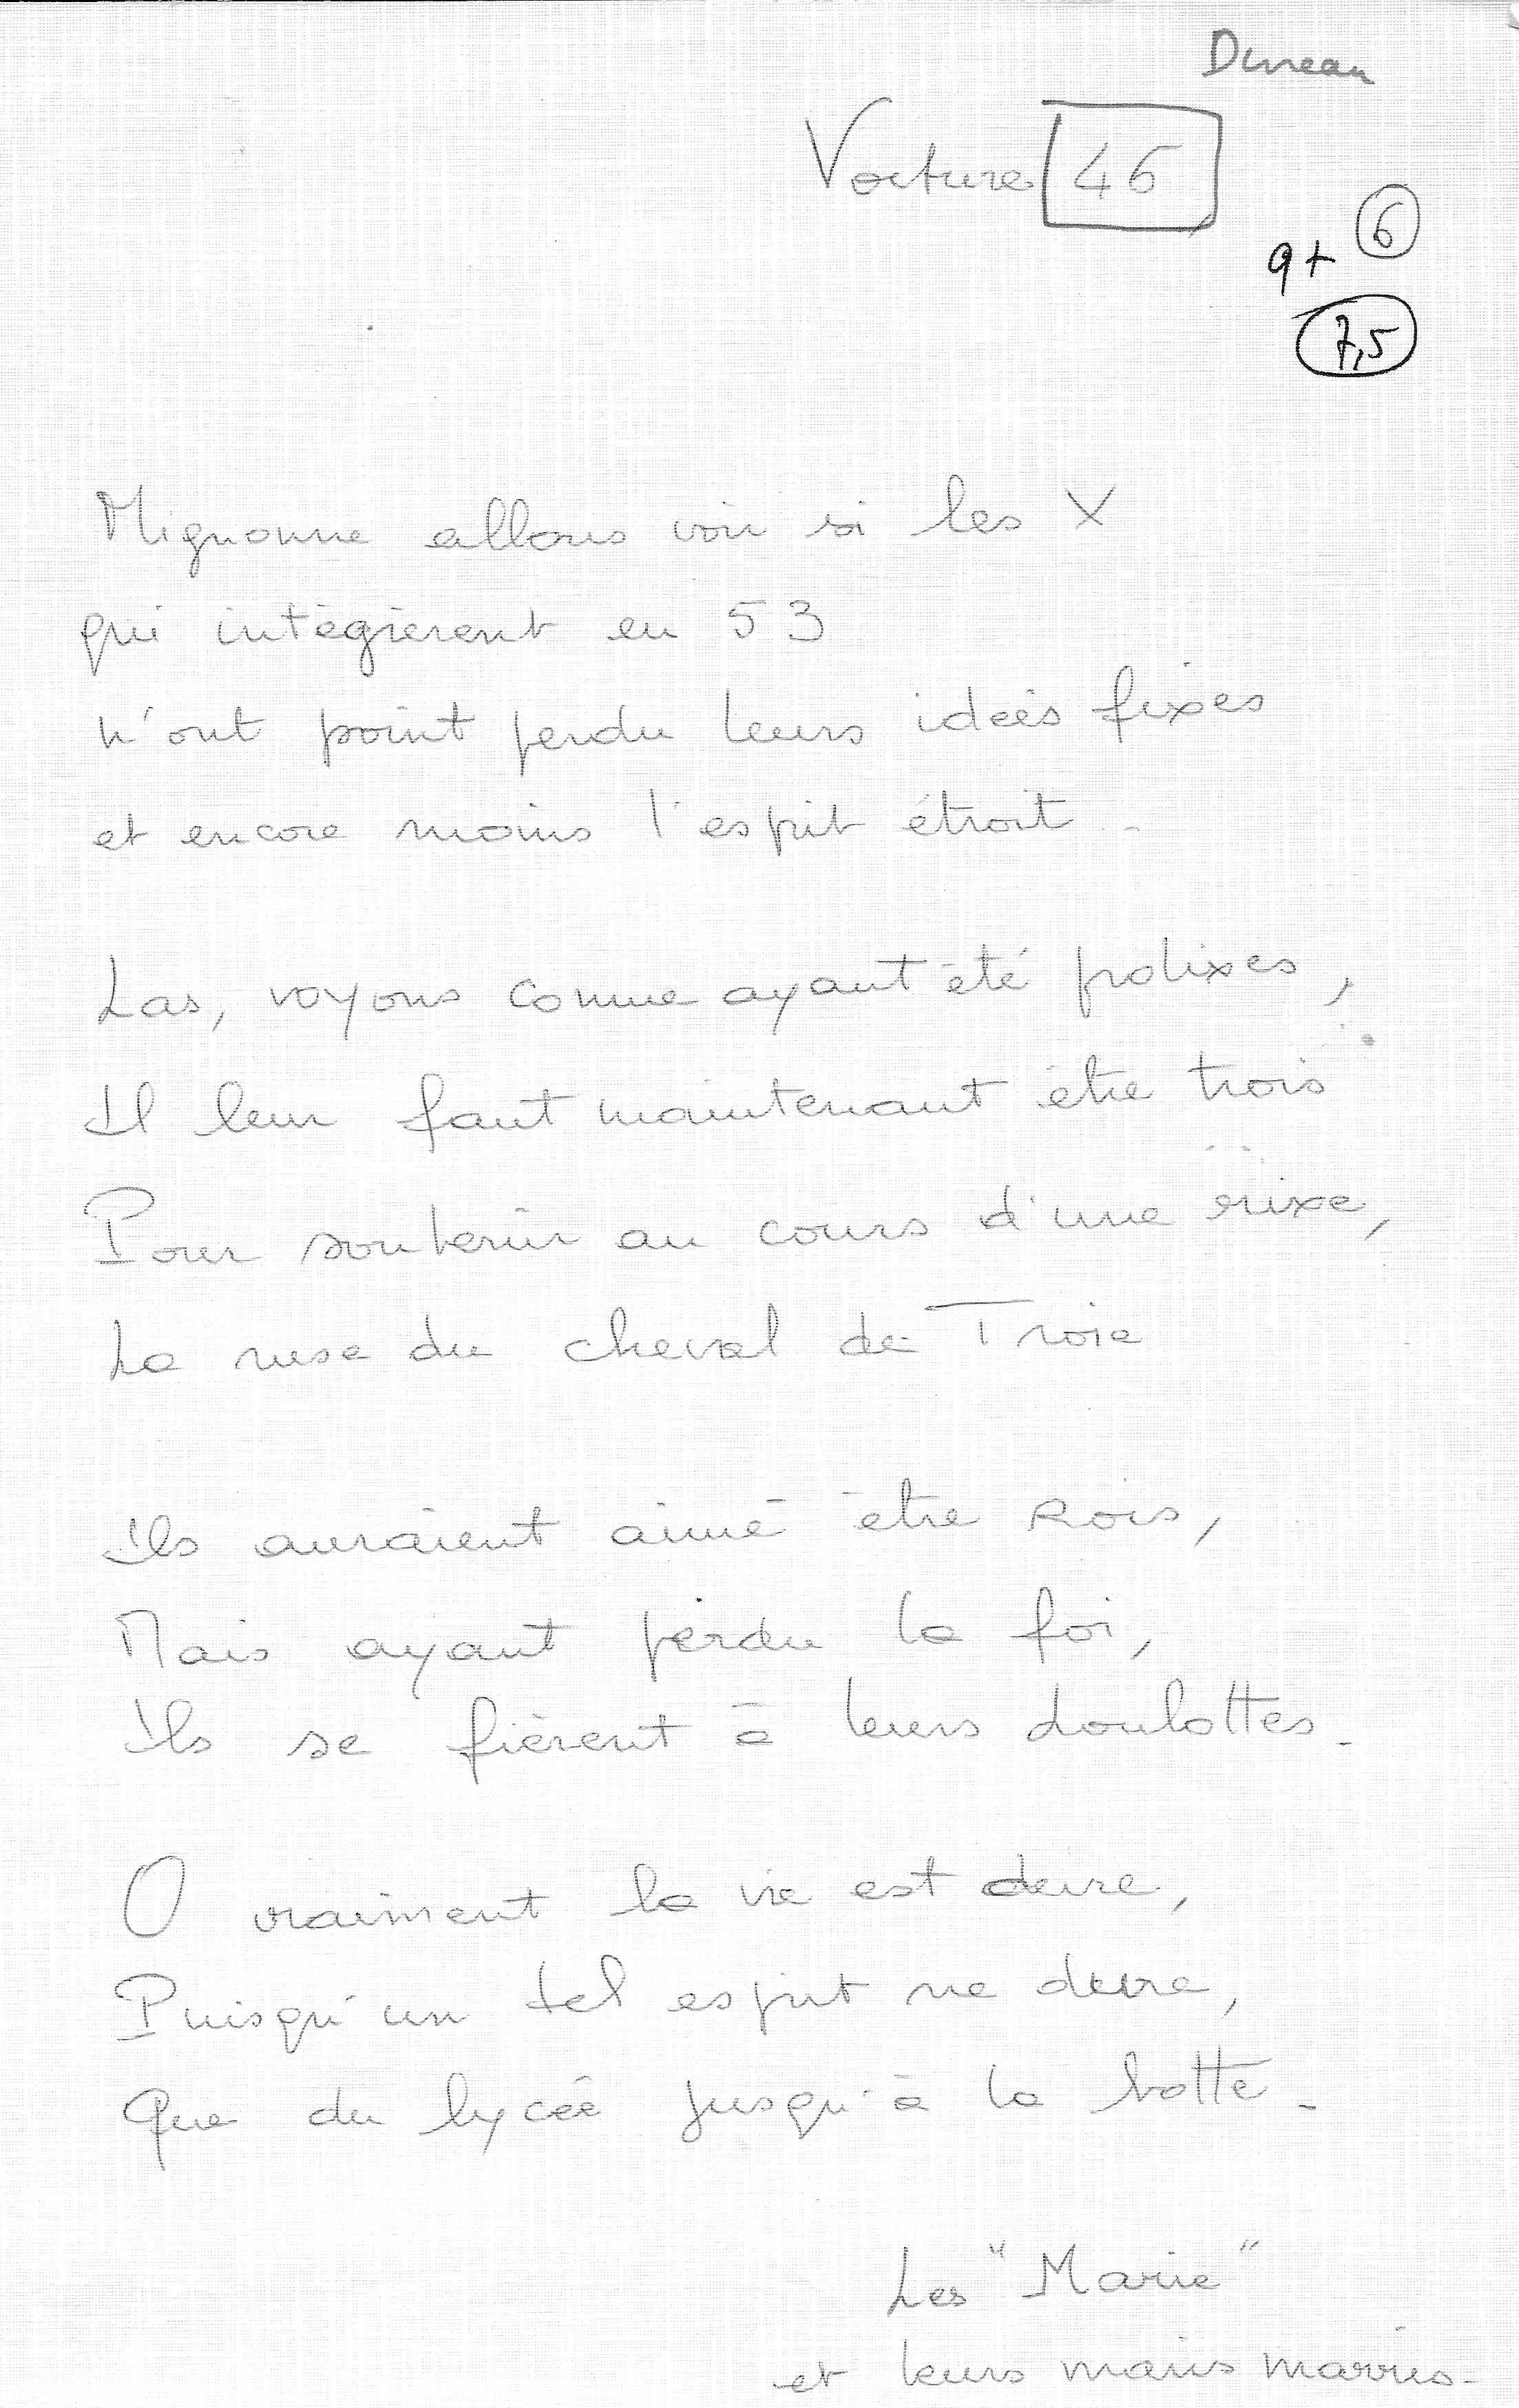 Dureau
Voiture 46
6
9+
7,5
Mignonne allons voir si les X
qui intégrèrent en 53
n'ont point perdu leurs idées fixes
et encore moins l'esprit étroit.
Las, voyons comme ayant été prolixes,
Il leur faut maintenant être trois
Pour soutenir au cours d'une rixe,
La ruse du cheval de Troie
Ils auraient aimé être Rois,
Mais ayant perdu la foi,
Ils se fièrent à leurs loulottes.
O vraiment la vie est dure,
Puisqu'un tel esprit ne dure,
Que du lycée jusqu'à la botte.
Les "Marie"
et leurs maris marris.